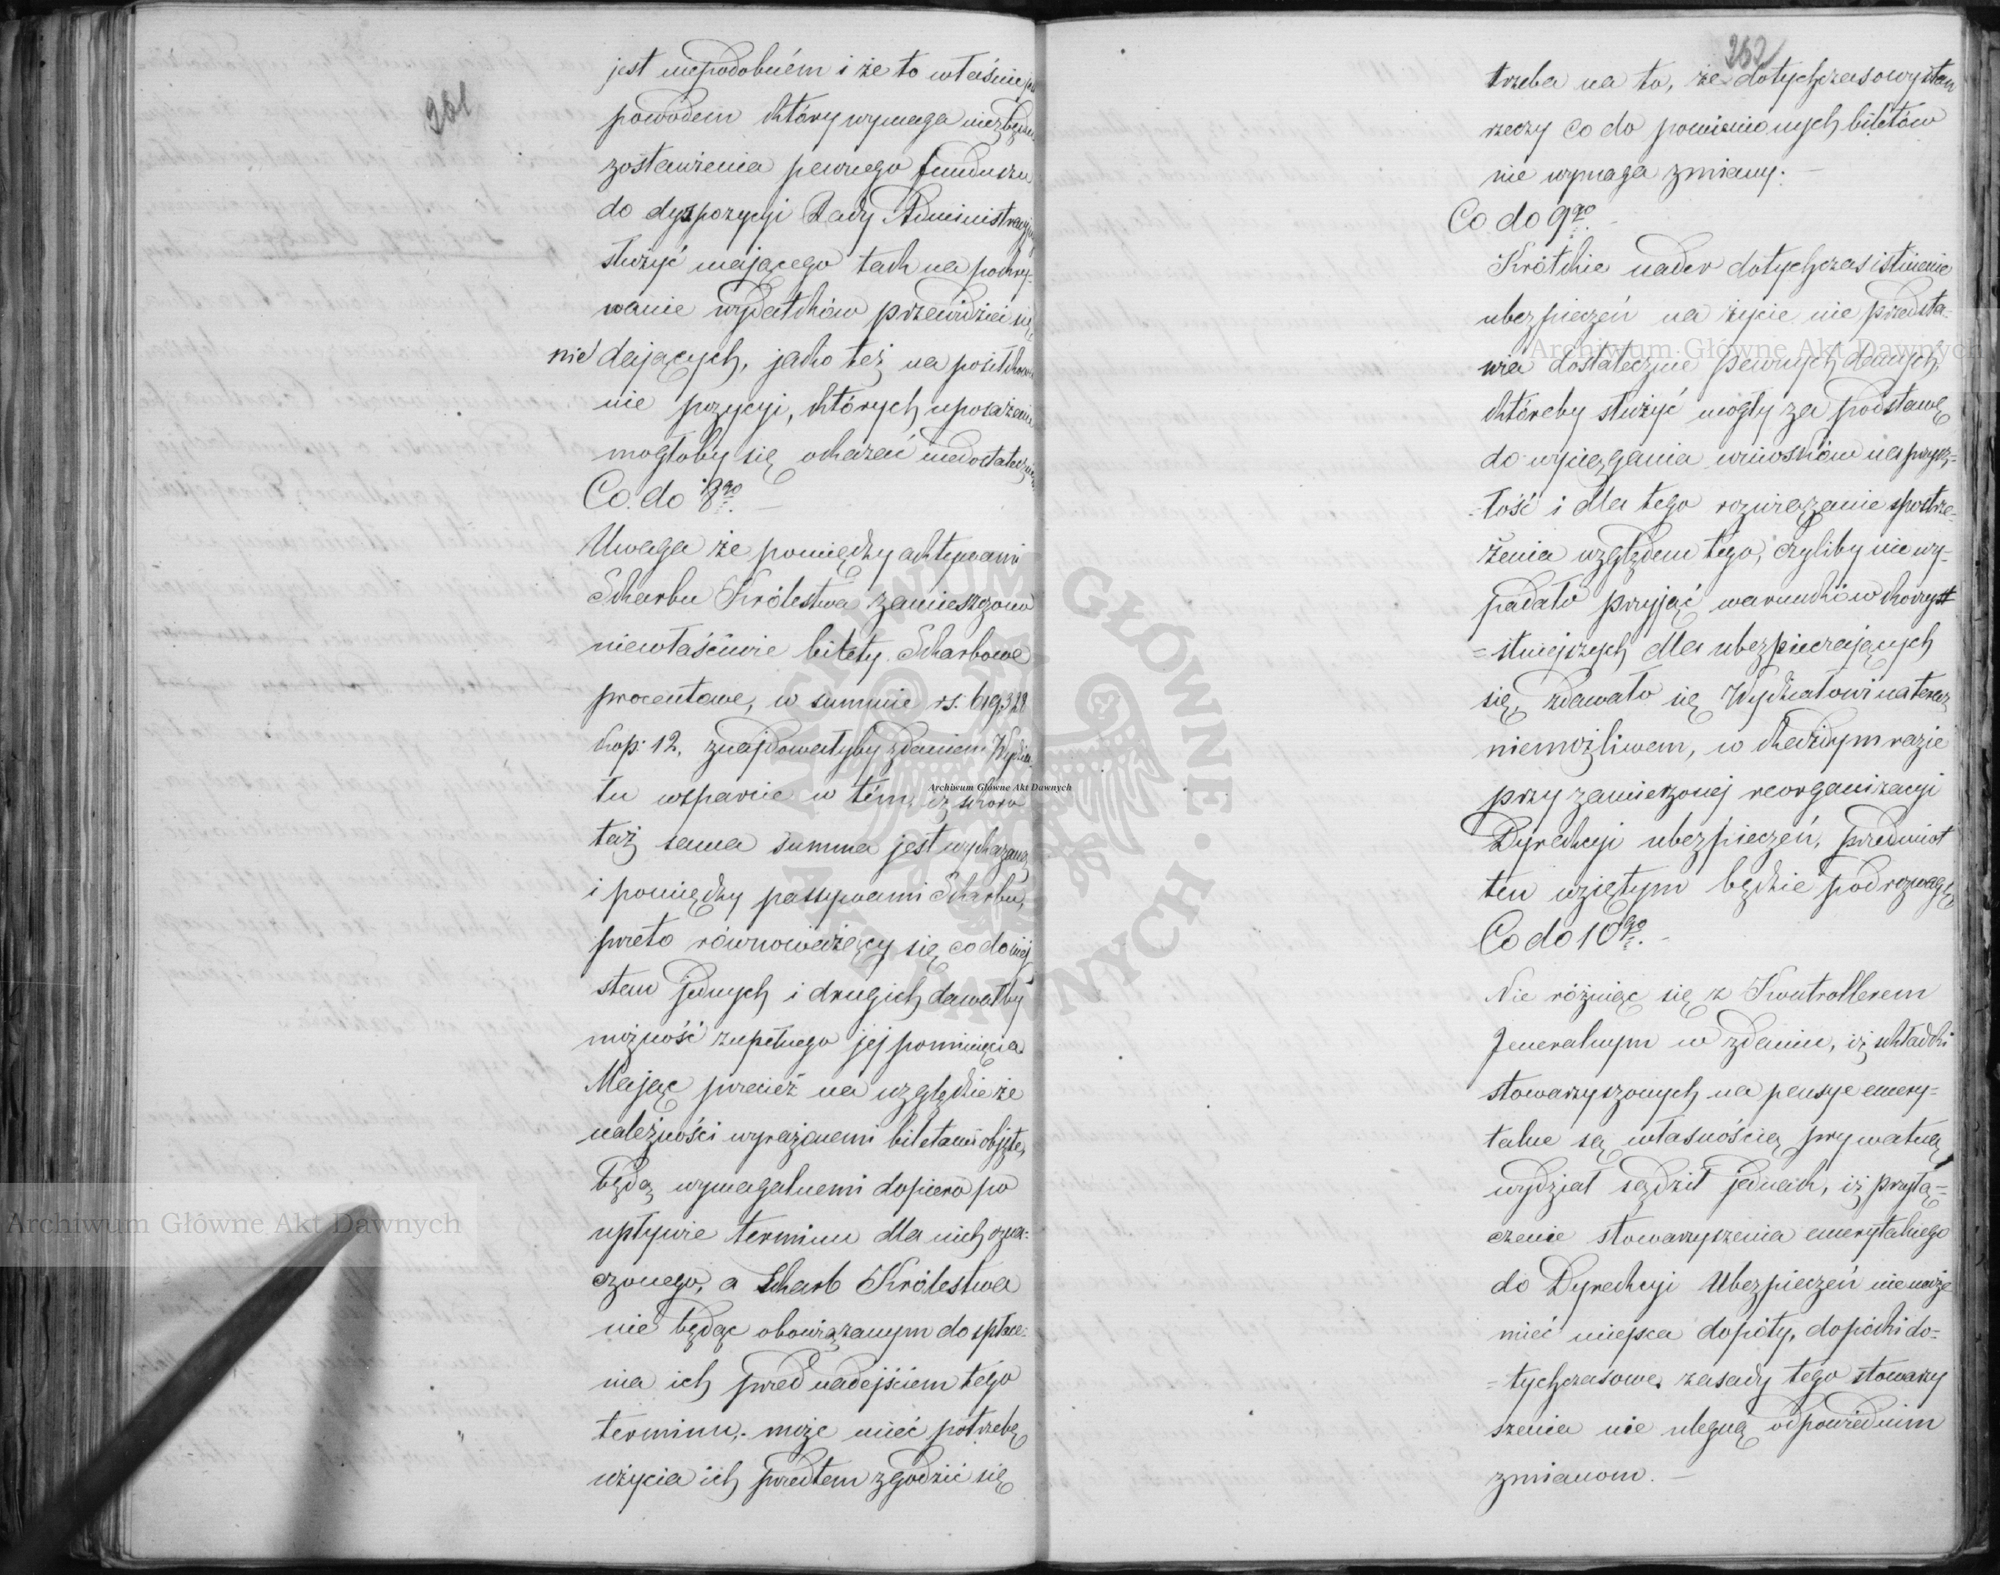 261
jest niepodobném i że to właśnie jest
powodem który wymaga niezbędnie
zostawienia pewnego funduszu
do dyspozycyi Rady Administracyjnej
służyć mającego tak na pokry-
wanie wydatków przewidzieć się
nie dających, jako też na posiłkowa-
nie pozycyi, których uposażenie
mogłoby się okazać niedostateczném
Co do 8go. —
Uwaga że pomiędzy aktywami
Skarbu Królestwa zamieszczono
niewłaściwie bilety Skarbowe
procentowe, w summie rs. 619,328
kop: 12. znajdowałyby zdaniem Wydzia-
łu wsparcie w tém, iż skoro
taż sama summa jest wykazaną
i pomiędzy passywami Skarbu,
przeto równoważący się co do niej
stan jednych i drugich dawałby
możność zupełnego jej pominięcia.
Mając przecież na względzie że
należności wyrażonemi biletami objęte,
będą wymagalnemi dopiero po
upływie terminu dla nich ozna-
czonego, a Skarb Królestwa
nie będąc obowiązanym do spłace-
nia ich przed nadejściem tego
terminu, może mieć potrzebę
użycia ich przedtem zgodzić się
262
trzeba na to, że dotychczasowy stan
rzeczy co do pomienionych biletów
nie wymaga zmiany. —
Co do 9go. —
Krótkie nader dotychczas istnienie
ubezpieczeń na życie nie przedsta-
wia dostatecznie pewnych danych,
któreby służyć mogły za podstawę
do wyciągania wniosków na przysz=
=łość i dla tego rozwiązanie spostrze-
żenia względem tego, czyliby nie wy-
padało przyjąć warunków korzyst
=stniejszych dla ubezpieczających
się, zdawało się Wydziałowi na teraz
niemożliwem, w każdym razie
przy zamierzonej reorganizacyi
Dyrekcyi ubezpieczeń, przedmiot
ten wziętym będzie pod rozwagę
Co do 10go. —
Nie różniąc się z Kontrollerem
Jeneralnym w zdaniu, iż składki
stowarzyszonych na pensye emery-
talne są własnością prywatną
wydział sądził jednak, iż przyłą=
czenie stowarzyszenia emerytalnego
do Dyrekcyi Ubezpieczeń nie może
mieć miejsca dopóty, dopóki do-
=tychczasowe zasady tego stowarzy
szenia nie ulegną odpowiednim
zmianom. —
Archiwum Główne Akt Dawnych
Archiwum Główne Akt Dawnych
Archiwum Główne Akt Dawnych
ARCHIWUM GŁÓWNE · AKT DAWNYCH ·